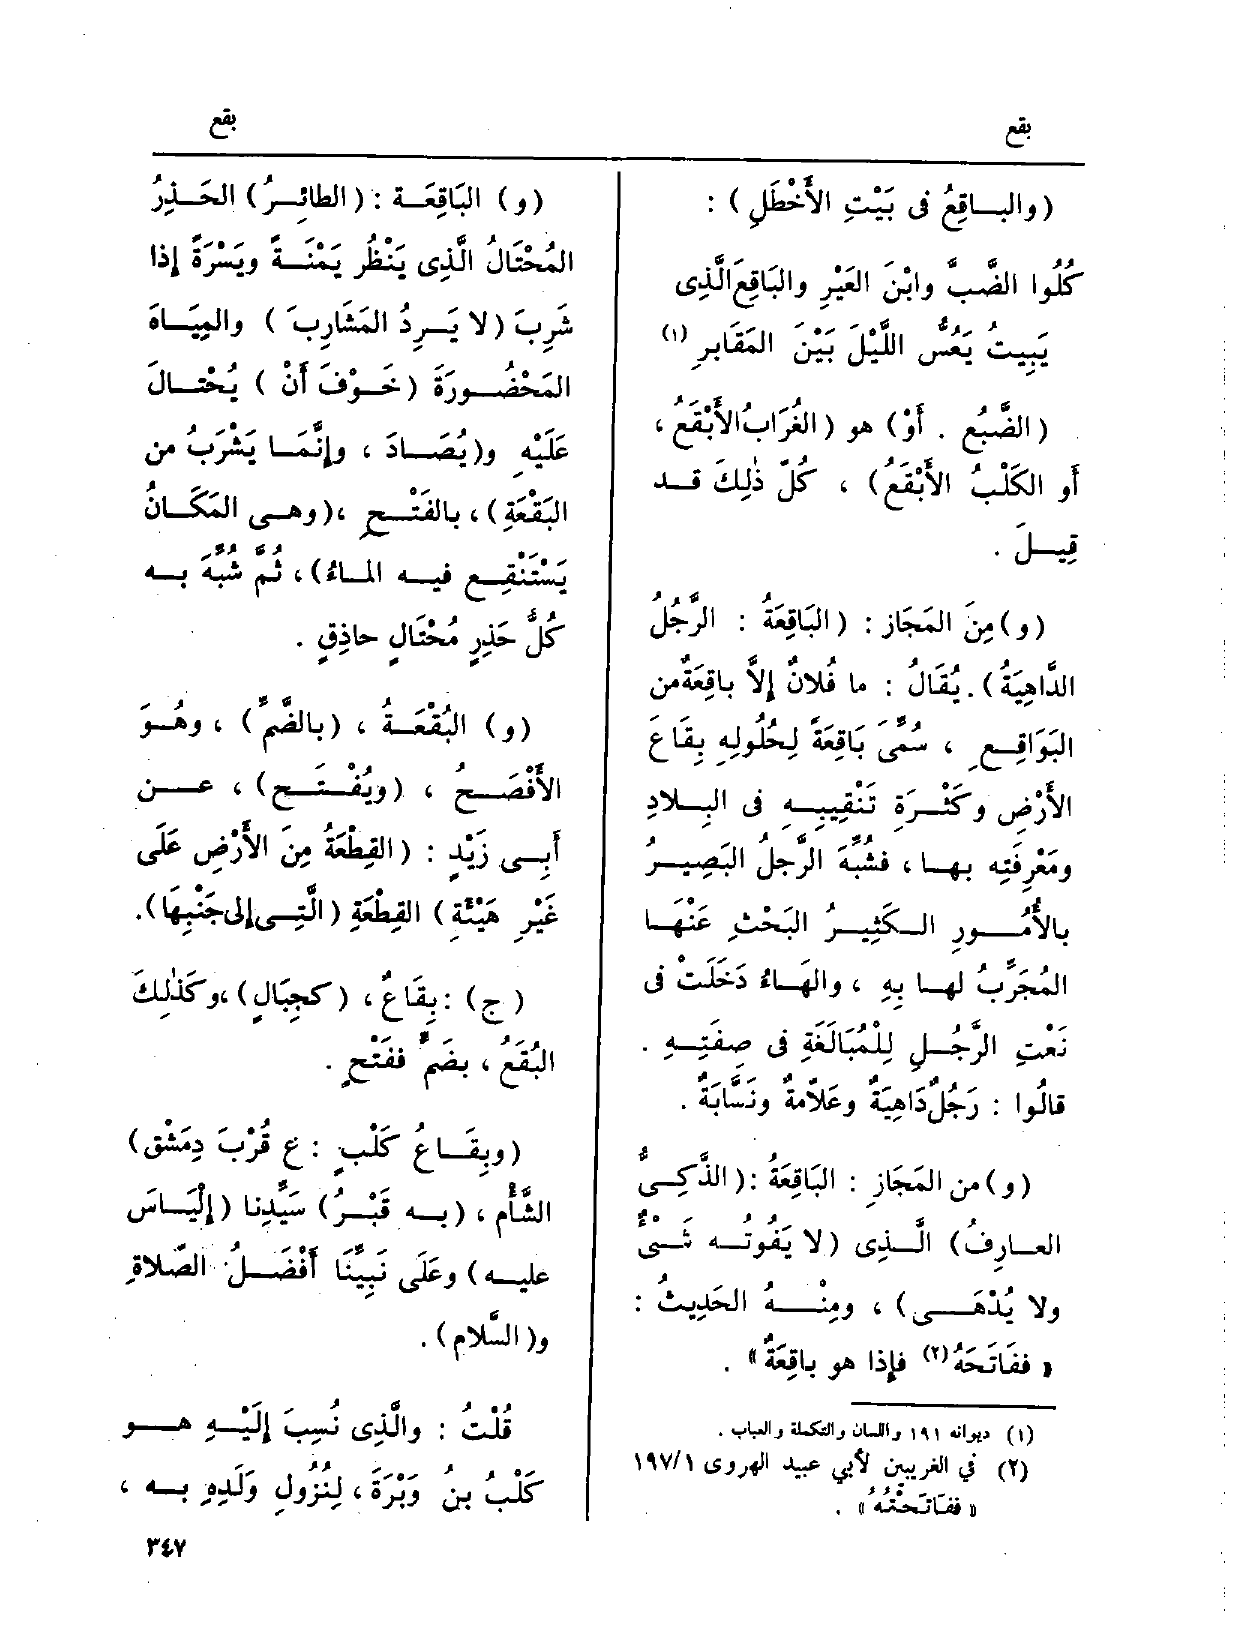 بقع
بقع
(والبـاقِعُ فى بَيْتِ الأَخْطَلِ) :
كُلُوا الضَّبَّ وابْنَ العَيْرِ والبَاقِعَ الَّذِى
يَبِيتُ يَعُسُّ اللَّيْلَ بَيْنَ المَقَابرِ (١)
(الضَّبُع . أَوْ) هو (الغُرَابُ الأَبْقَعُ ،
أو الكَلْبُ الأَبْقَعُ) ، كُلّ ذٰلِكَ قـد
قِيـلَ .
(و) مِنَ المَجَاز : (البَاقِعَةُ : الرَّجُلُ
الدَّاهِيَةُ). يُقَالُ : ما فُلانٌ إلاَّ باقِعَةٌ من
البَوَاقِـعِ ، سُمِّىَ بَاقِعَةً لِحُلُولِهِ بِقَاعَ
الأَرْضِ وكَثْـرَةِ تَنْقِيبِـهِ فى البِـلادِ
ومَعْرِفَتِه بهـا ، فشُبِّهَ الرَّجلُ البَصِيـرُ
بالأُمُـورِ الـكَثِيـرُ البَحْثِ عَنْهَـا
المُجَرِّبُ لهـا بِهِ ، والهَاءُ دَخَلَتْ فى
نَعْتِ الرَّجُـلِ لِلْمُبَالَغَةِ فى صِفَتِـهِ .
قالُوا : رَجُلٌ دَاهِيَةٌ وعَلاَّمةٌ ونَسَّابَةٌ .
(و) من المَجَازِ : البَاقِعَةُ : (الذَّكِـىُّ
العـارِفُ) الَّـذِى (لا يَفُوتُـه شَـىْءٌ
ولا يُدْهَـى) ، ومِنْـهُ الحَدِيثُ :
« ففَاتَحَهُ (٢) فإِذا هو باقِعَةٌ » .
(١) ديوانه ١٩١ واللسان والتكملة والعباب .
(٢) في الغريبين لأبي عبيد الهروى ١٩٧/١
« ففَاتَحَتْهُ » .
(و) البَاقِعَـة : (الطائِـرُ) الحَـذِرُ
المُحْتَالُ الَّذِى يَنْظُر يَمْنَـةً ويَسْرَةً إذا
شرِبَ (لا يَـرِدُ المَشَارِبَ) والمِيَـاهَ
المَحْضُـورَةَ (خَـوْفَ أَنْ) يُحْتـالَ
عَلَيْهِ و(يُصَـادَ ، وإنَّمَـا يَشْرَبُ من
البَقْعَةِ) ، بالفَتْـحِ ، (وهـى المَكَـانُ
يَسْتَنْقِـع فيـه المـاءُ) ، ثُمَّ شُبِّهَ بـه
كُلُّ حَذِرٍ مُحْتَالٍ حاذِقٍ .
(و) البُقْعَـةُ ، (بالضَّمِّ) ، وهُـوَ
الأَفْصَـحُ ، (ويُفْـتَـح) ، عـن
أَبِـى زَيْدٍ : (القِطْعَةُ مِنَ الأَرْضِ عَلَى
غَيْرِ هَيْئَةِ) القِطْعَةِ (الَّتِـى إلى جَنْبِهَا).
(ج) : بِقَاعٌ ، (كجِبَالٍ) ، وكَذٰلِكَ
البُقَعُ ، بضَمٍّ ففَتْحٍ .
(وبِقَـاعُ كَلْبٍ : ع قُرْبَ دِمَشْق)
الشَّأْم ، (بـه قَبْـرُ) سَيِّدِنا (إِلْيَـاسَ
عليـه) وعَلَى نَبِيِّنَا أَفْضَـلُ الصَّلاةِ
و(السَّلام) .
قُلْتُ : والَّذِى نُسِبَ إِلَيْـهِ هـو
كَلْبُ بنُ وَبْرَةَ ، لِنُزُولِ وَلَدِهِ بـه ،
٣٤٧